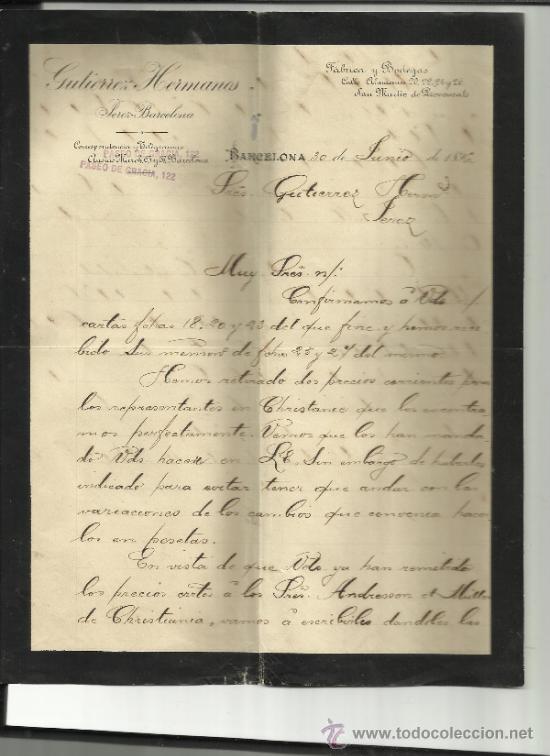 Gutierrez Hermanos
Jerez-Barcelona
Fábrica y Bodegas
20, 22, 24 y 26
San Martín de Provensals
PASEO DE GRACIA, 122
PASEO DE GRACIA, 122
BARCELONA 30 de Junio de
Sres. Gutierrez Herms
Jerez
Muy Sres. n/:
Confirmamos á Vds
cartas fhas 18, 20 y 23 del que fine y hemos reci
bido sus de fhas 25 y 27 del mismo.
Hemos retirado dos precios corrientes para
los representantes en Christania que los encontra
mos perfectamente. Vemos que los han manda
do Vds hacer en L.E. Sin embargo de haberlos
indicado para evitar tener que andar con las
variaciones de los cambios que convenia hacer
los en pesetas.
En vista de que Vds ya han remitido
los precios crtes á los Sres. Andresson et
de Christiania, vamos á escribirles dandoles las
www.todocoleccion.net